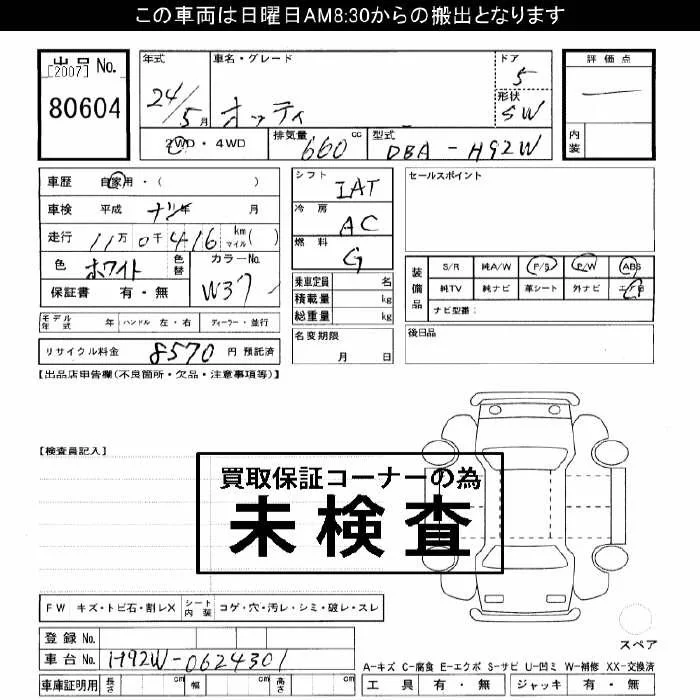 この車両は日曜日AM8:30からの搬出となります
出品 No.
[2007]
80604
年式
24/5月
車名・グレード
オッティ
ドア
5
形状
SW
評価点
—
内装
2WD・4WD
排気量
660 cc
型式
DBA-H92W
車歴 自家用・( )
車検 平成 ナシ 年 月
走行 11万0千416 km マイル( )
色 ホワイト 色替
カラーNo.
W37
保証書 有・無
モデル年式 年 ハンドル 左・右 ディーラー・並行
リサイクル料金 8570 円 預託済
シフト
IAT
冷房
AC
燃料
G
乗車定員 名
積載量 kg
総重量 kg
名変期限
月 日
セールスポイント
装備品
S/R 純A/W P/S P/W ABS
純TV 純ナビ 革シート 外ナビ
ナビ型番:
後日品
【出品店申告欄(不良箇所・欠品・注意事項等)】
【検査員記入】
買取保証コーナーの為
未検査
FW キズ・トビ石・割レX
シート内装 コゲ・穴・汚レ・シミ・破レ・スレ
登録 No.
車台 No. H92W-0624301
車庫証明用 長さ cm 幅 cm 高さ cm
スペア
A-キズ C-腐食 E-エクボ S-サビ U-凹ミ W-補修 XX-交換済
工具 有・無 ジャッキ 有・無